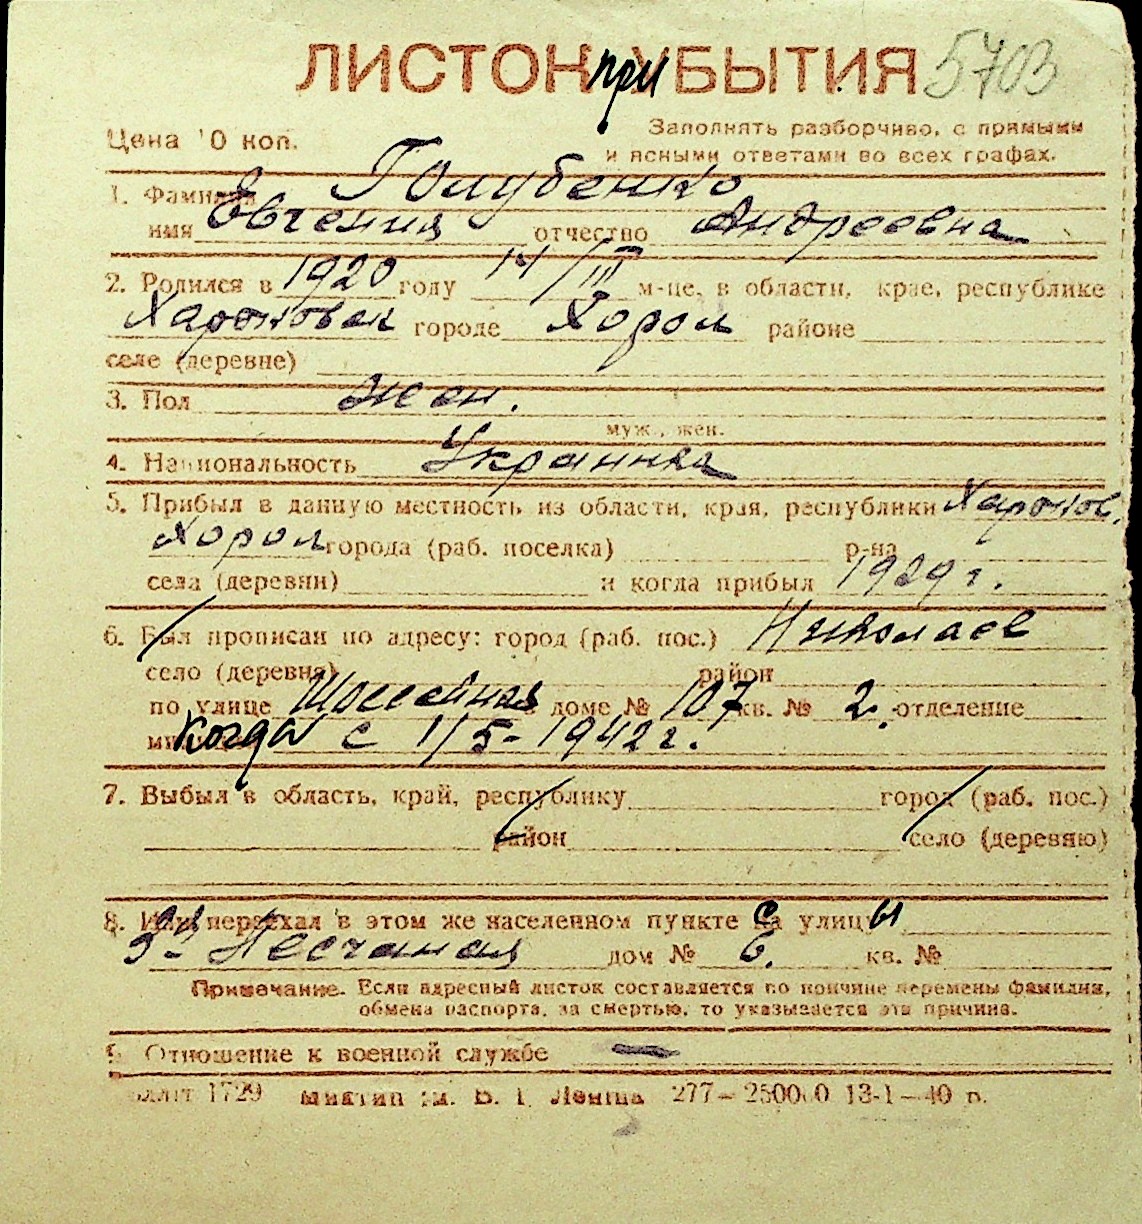 ЛИСТОК при УБЫТИЯ 5703
Цена 10 коп.
Заполнять разборчиво, с прямыми
и ясными ответами во всех графах.
1. Фамилия Голубенко
имя Евгения отчество Андреевна
2. Родился в 1920 году 14/III м-це, в области, крае, республике
Харьковск городе Хорол районе
селе (деревне)
3. Пол жен.
муж., жен.
4. Национальность Украинка
5. Прибыл в данную местность из области, края, республики Харьков.
Хорол города (раб. поселка) р-на
села (деревни) и когда прибыл 1929 г.
6. Был прописан по адресу: город (раб. пос.) Николаев
село (деревня) район
по улице Шоссейная в доме № 107 кв. № 2. отделение
когда с 1/5-1942 г.
7. Выбыл в область, край, республику город (раб. пос.)
район село (деревню)
8. Или переехал в этом же населенном пункте с на улицы
3-я Песчаная дом № 6. кв. №
Примечание. Если адресный листок составляется по причине перемены фамилии,
обмена паспорта, за смертью, то указывается эта причина.
9. Отношение к военной службе —
1729 им. В. І. Леніна 277—250000 13-1—40 р.